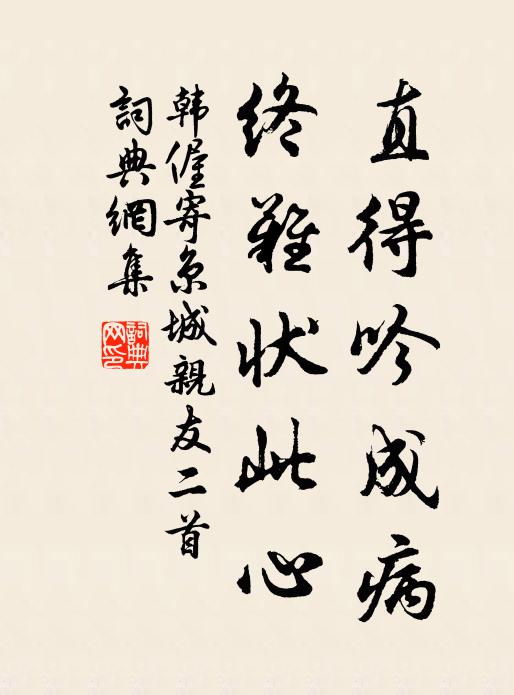 直得吟成病
终難状此心
韩偓寄京城親友二首
詞典網集
詞典网印